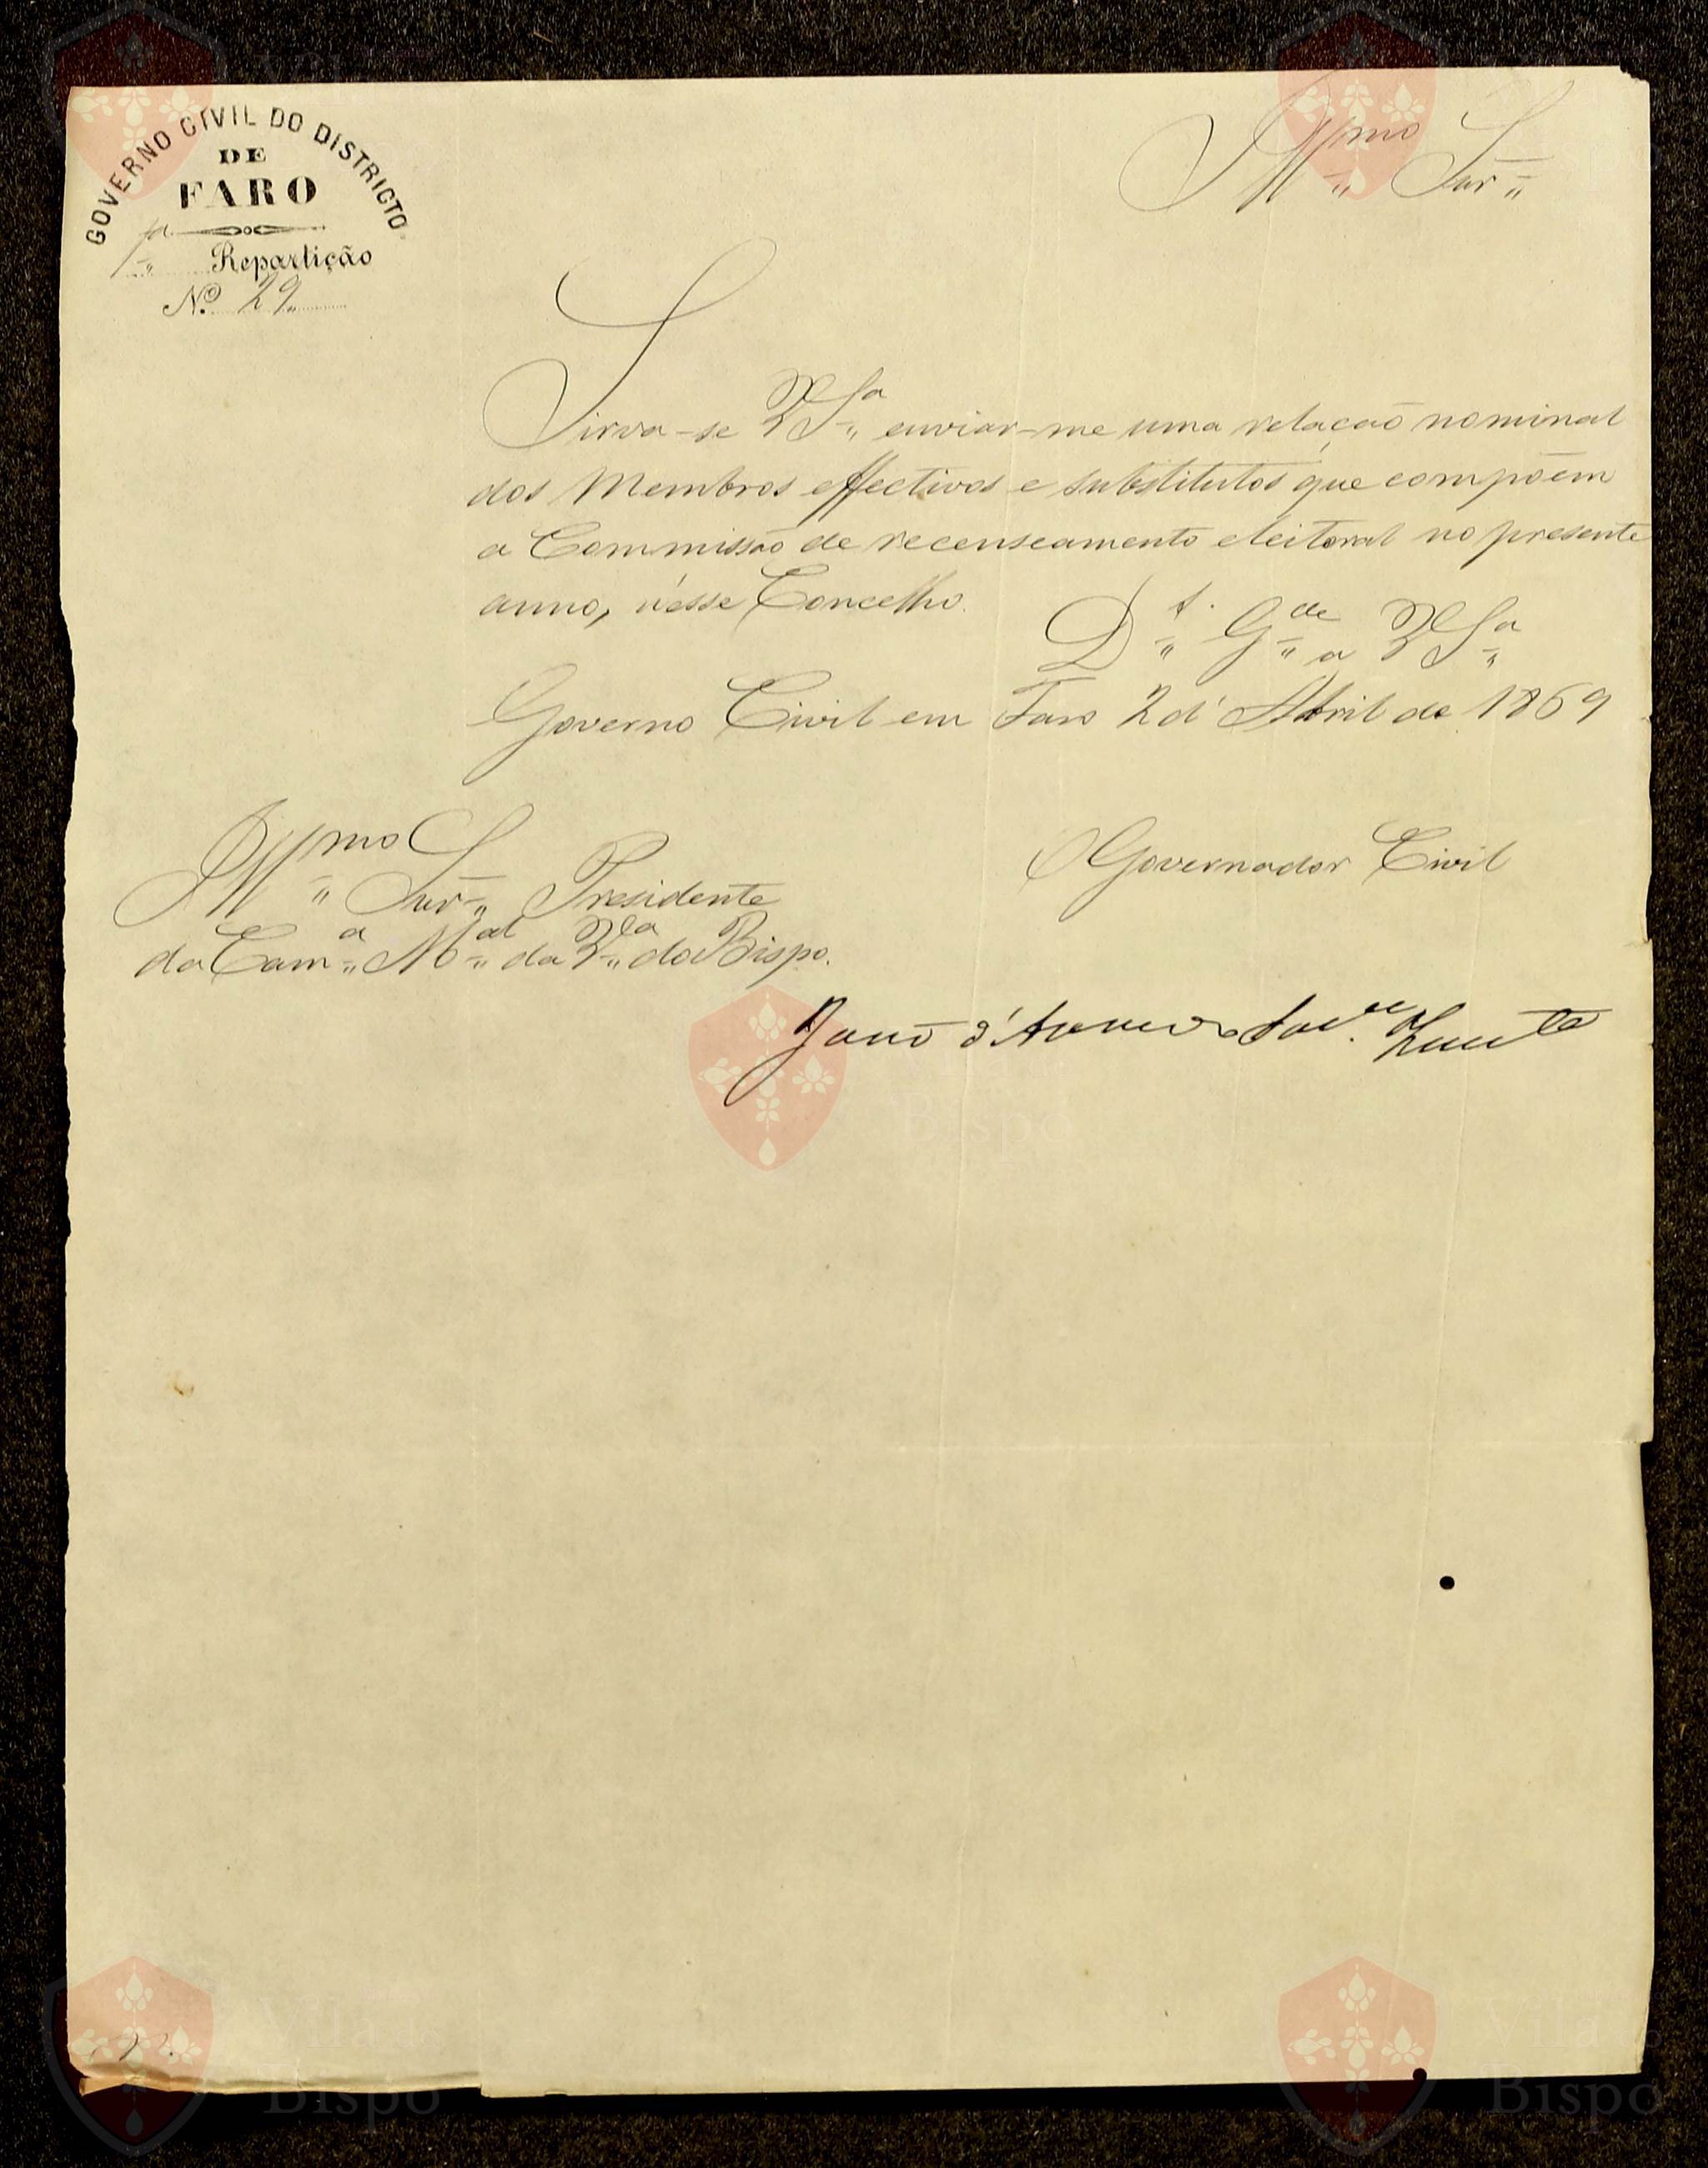 GOVERNO CIVIL DO DISTRICTO
DE
FARO
1ª Repartição
Nº 29
Illmo Snr
Sirva-se V Sª enviar-me uma relação nominal
dos Membros effectivos e substitutos que compõem
a Commissão de recenseamento eleitoral no presente
anno, n'esse Concelho.
Ds. Gde a V Sª
Governo Civil em Faro 2 d'Abril de 1869
O Governador Civil
Illmo Snr Presidente
da Camª Mal da Vla do Bispo.
João d'
Vila do
Bispo